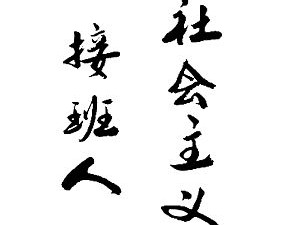 社会主义
接班人